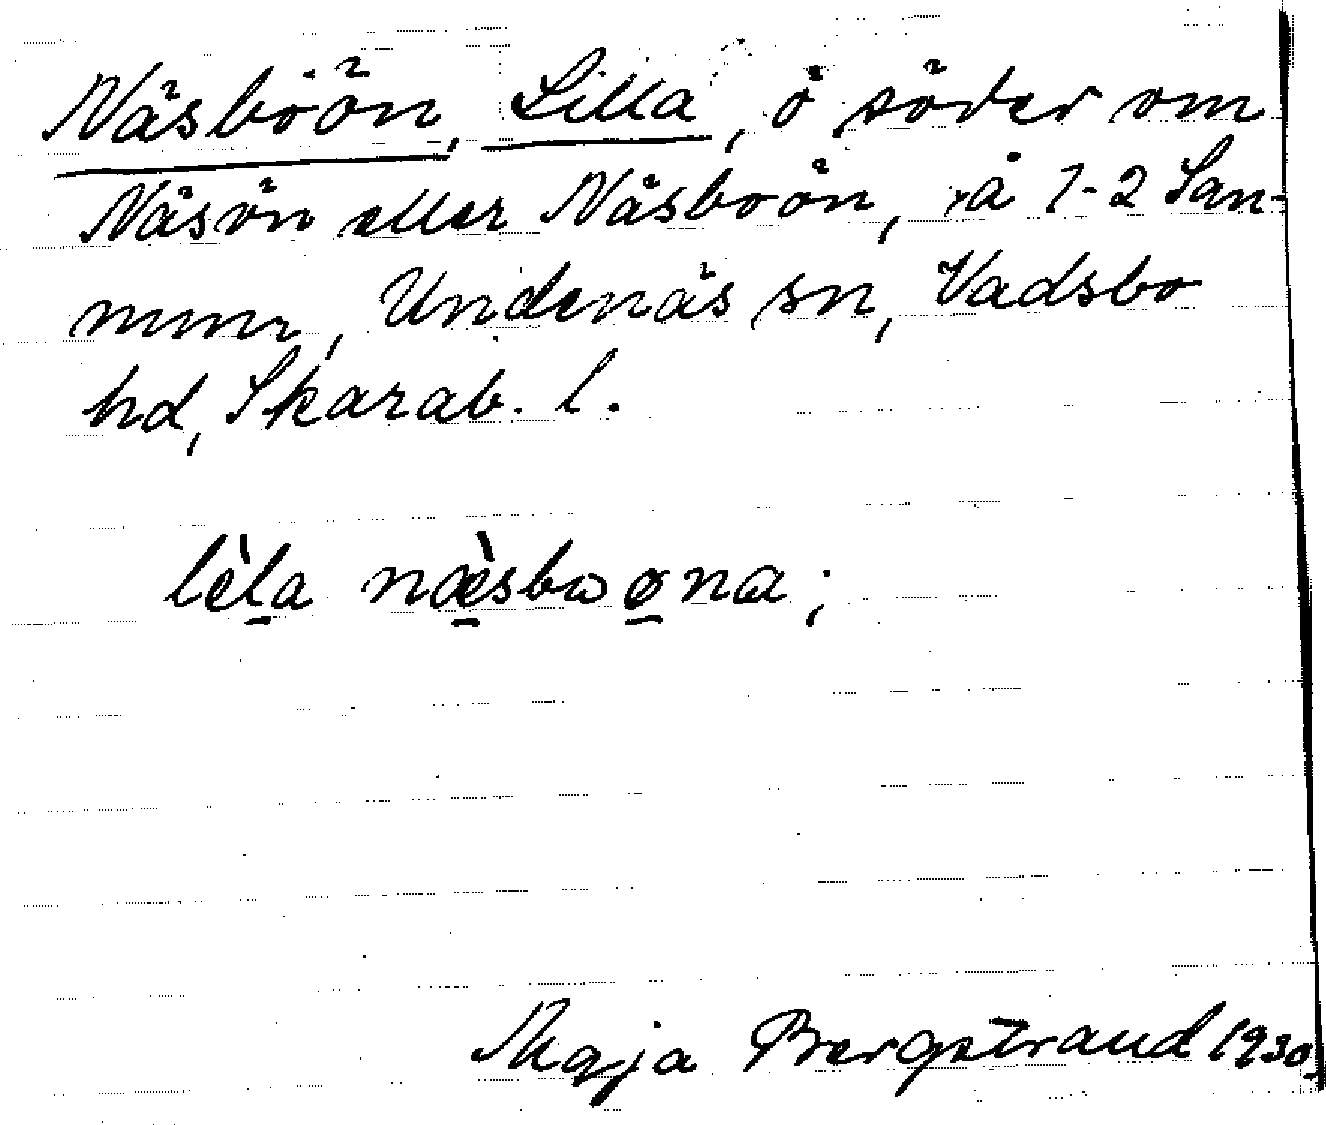 Näsboön, Lilla, ö söder om
Näsön eller Näsboön, å 1-2 San-
num, Undenäs sn, Vadsbo
hd, Skarab. l.
lèla næ̀sbω øna;
Maja Bergstrand 1930.